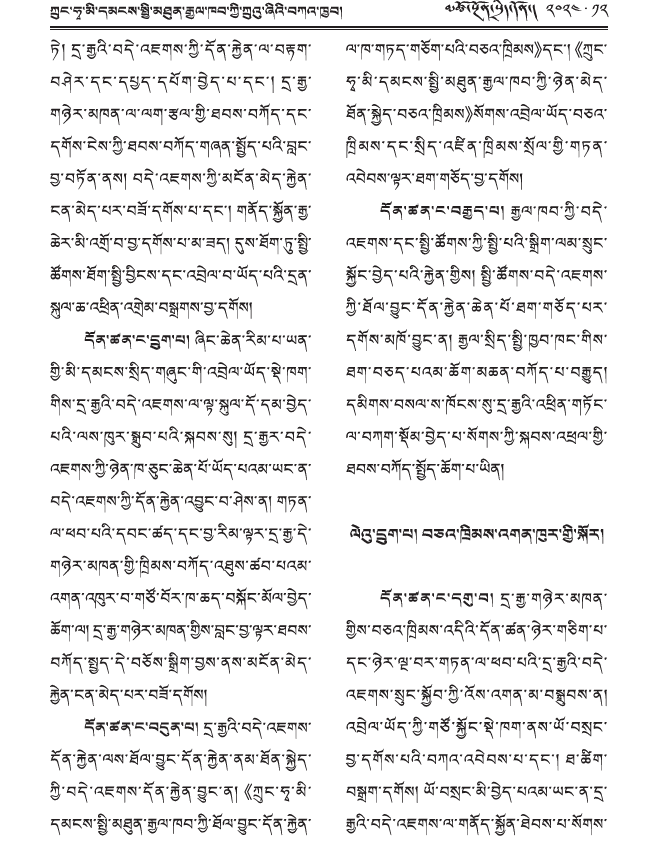 ཀྲུང་ཧྭ་མི་དམངས་སྤྱི་མཐུན་རྒྱལ་ཁབ་ཀྱི་ཀྲུའུ་ཞིའི་བཀའ་ཁྱབ།
༢༠༢༤ · ༡༢
ཏེ། དྲ་རྒྱའི་བདེ་འཇགས་ཀྱི་དོན་རྐྱེན་ལ་བརྟག་
བཤེར་དང་དཔྱད་དཔོག་བྱེད་པ་དང་། དྲ་རྒྱ་
གཉེར་མཁན་ལ་ལག་རྩལ་གྱི་ཐབས་བཀོད་དང་
དགོས་ངེས་ཀྱི་ཐབས་བཀོད་གཞན་སྤྱོད་པའི་བླང་
བྱ་བཏོན་ནས། བདེ་འཇགས་ཀྱི་མངོན་མེད་རྐྱེན་
ངན་མེད་པར་བཟོ་དགོས་པ་དང་། གནོད་སྐྱོན་རྒྱ་
ཆེར་མི་འགྲོ་བ་བྱ་དགོས་པ་མ་ཟད། དུས་ཐོག་ཏུ་སྤྱི་
ཚོགས་ཐོག་སྤྱི་བྱིངས་དང་འབྲེལ་བ་ཡོད་པའི་དྲན་
སྐུལ་ཆ་འཕྲིན་འགྲེམ་བསྒྲགས་བྱ་དགོས།
དོན་ཚན་ང་དྲུག་པ། ཞིང་ཆེན་རིམ་པ་ཡན་
གྱི་མི་དམངས་སྲིད་གཞུང་གི་འབྲེལ་ཡོད་སྡེ་ཁག་
གིས་དྲ་རྒྱའི་བདེ་འཇགས་ལ་ལྟ་སྐུལ་དོ་དམ་བྱེད་
པའི་ལས་ཁུར་སྒྲུབ་པའི་སྐབས་སུ། དྲ་རྒྱར་བདེ་
འཇགས་ཀྱི་ཉེན་ཁ་ཅུང་ཆེན་པོ་ཡོད་པའམ་ཡང་ན་
བདེ་འཇགས་ཀྱི་དོན་རྐྱེན་འབྱུང་བ་ཤེས་ན། གཏན་
ལ་ཕབ་པའི་དབང་ཚད་དང་བྱ་རིམ་ལྟར་དྲ་རྒྱ་དེ་
གཉེར་མཁན་གྱི་ཁྲིམས་བཀོད་འཐུས་ཚབ་པའམ་
འགན་འཁུར་བ་གཙོ་བོར་ཁ་ཆད་བསྐོང་མོལ་བྱེད་
ཆོག་ལ། དྲ་རྒྱ་གཉེར་མཁན་གྱིས་བླང་བྱ་ལྟར་ཐབས་
བཀོད་སྤྱད་དེ་བཅོས་སྒྲིག་བྱས་ནས་མངོན་མེད་
རྐྱེན་ངན་མེད་པར་བཟོ་དགོས།
དོན་ཚན་ང་བདུན་པ། དྲ་རྒྱའི་བདེ་འཇགས་
དོན་རྐྱེན་ལས་ཐོལ་བྱུང་དོན་རྐྱེན་ནམ་ཐོན་སྐྱེད་
ཀྱི་བདེ་འཇགས་དོན་རྐྱེན་བྱུང་ན། 《ཀྲུང་ཧྭ་མི་
དམངས་སྤྱི་མཐུན་རྒྱལ་ཁབ་ཀྱི་ཐོལ་བྱུང་དོན་རྐྱེན་
ལ་ཁ་གཏད་གཅོག་པའི་བཅའ་ཁྲིམས》དང་། 《ཀྲུང་
ཧྭ་མི་དམངས་སྤྱི་མཐུན་རྒྱལ་ཁབ་ཀྱི་ཉེན་མེད་
ཐོན་སྐྱེད་བཅའ་ཁྲིམས》སོགས་འབྲེལ་ཡོད་བཅའ་
ཁྲིམས་དང་སྲིད་འཛིན་ཁྲིམས་སྲོལ་གྱི་གཏན་
འབེབས་ལྟར་ཐག་གཅོད་བྱ་དགོས།
དོན་ཚན་ང་བརྒྱད་པ། རྒྱལ་ཁབ་ཀྱི་བདེ་
འཇགས་དང་སྤྱི་ཚོགས་ཀྱི་སྤྱི་པའི་སྒྲིག་ལམ་སྲུང་
སྐྱོང་བྱེད་པའི་རྐྱེན་གྱིས། སྤྱི་ཚོགས་བདེ་འཇགས་
ཀྱི་ཐོལ་བྱུང་དོན་རྐྱེན་ཆེན་པོ་ཐག་གཅོད་པར་
དགོས་མཁོ་བྱུང་ན། རྒྱལ་སྲིད་སྤྱི་ཁྱབ་ཁང་གིས་
ཐག་བཅད་པའམ་ཆོག་མཆན་བཀོད་པ་བརྒྱུད།
དམིགས་བསལ་ས་ཁོངས་སུ་དྲ་རྒྱའི་འཕྲིན་གཏོང་
ལ་བཀག་སྡོམ་བྱེད་པ་སོགས་ཀྱི་སྐབས་འཕྲལ་གྱི་
ཐབས་བཀོད་སྤྱོད་ཆོག་པ་ཡིན།
ལེའུ་དྲུག་པ། བཅའ་ཁྲིམས་འགན་ཁུར་གྱི་སྐོར།
དོན་ཚན་ང་དགུ་བ། དྲ་རྒྱ་གཉེར་མཁན་
གྱིས་བཅའ་ཁྲིམས་འདིའི་དོན་ཚན་ཉེར་གཅིག་པ་
དང་ཉེར་ལྔ་བར་གཏན་ལ་ཕབ་པའི་དྲ་རྒྱའི་བདེ་
འཇགས་སྲུང་སྐྱོབ་ཀྱི་འོས་འགན་མ་བསྒྲུབས་ན།
འབྲེལ་ཡོད་ཀྱི་གཙོ་སྐྱོང་སྡེ་ཁག་ནས་ཡོ་བསྲང་
བྱ་དགོས་པའི་བཀའ་འབེབས་པ་དང་། ཐ་ཚིག་
བསྒྲག་དགོས། ཡོ་བསྲང་མི་བྱེད་པའམ་ཡང་ན་དྲ་
རྒྱའི་བདེ་འཇགས་ལ་གནོད་སྐྱོན་ཐེབས་པ་སོགས་